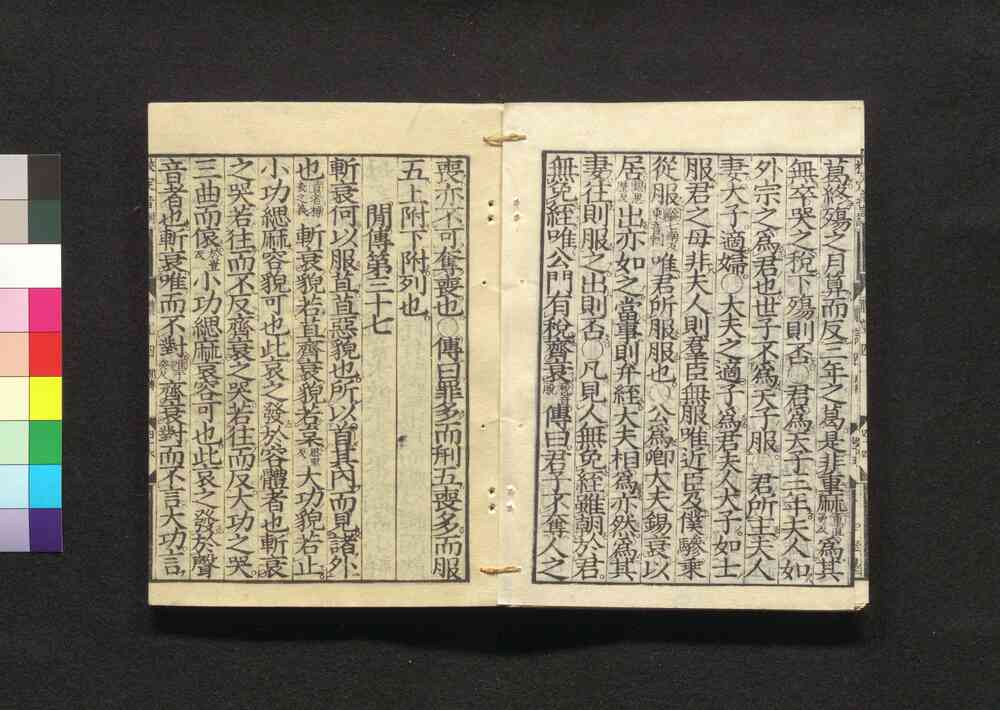 葛終殤之月筭而反三年之葛是非重麻為其
無卒哭之稅下殤則否○君為天子三年夫人如
外宗之為君也世子不為天子服○君所主夫人
妻大子適婦○大夫之適子為君夫人大子如士
服君之母非夫人則羣臣無服唯近臣及僕驂乗
從服唯君所服服也○公為卿大夫錫衰以
居出亦如之當事則弁絰大夫相為亦然為其
妻往則服之出則否○凡見人無免絰雖朝於君
無免絰唯公門有稅齊衰傳曰君子不奪人之
喪亦不可奪喪也○傳曰罪多而刑五喪多而服
五上附下附列也
閒傳第三十七
斬衰何以服苴苴惡貌也所以首其內而見諸外
也斬衰貌若苴齊衰貌若枲大功貌若止
小功緦麻容貌可也此哀之發於容體者也斬衰
之哭若往而不反齊衰之哭若往而反大功之哭
三曲而偯小功緦麻哀容可也此哀之發於聲
音者也斬衰唯而不對齊衰對而不言大功言